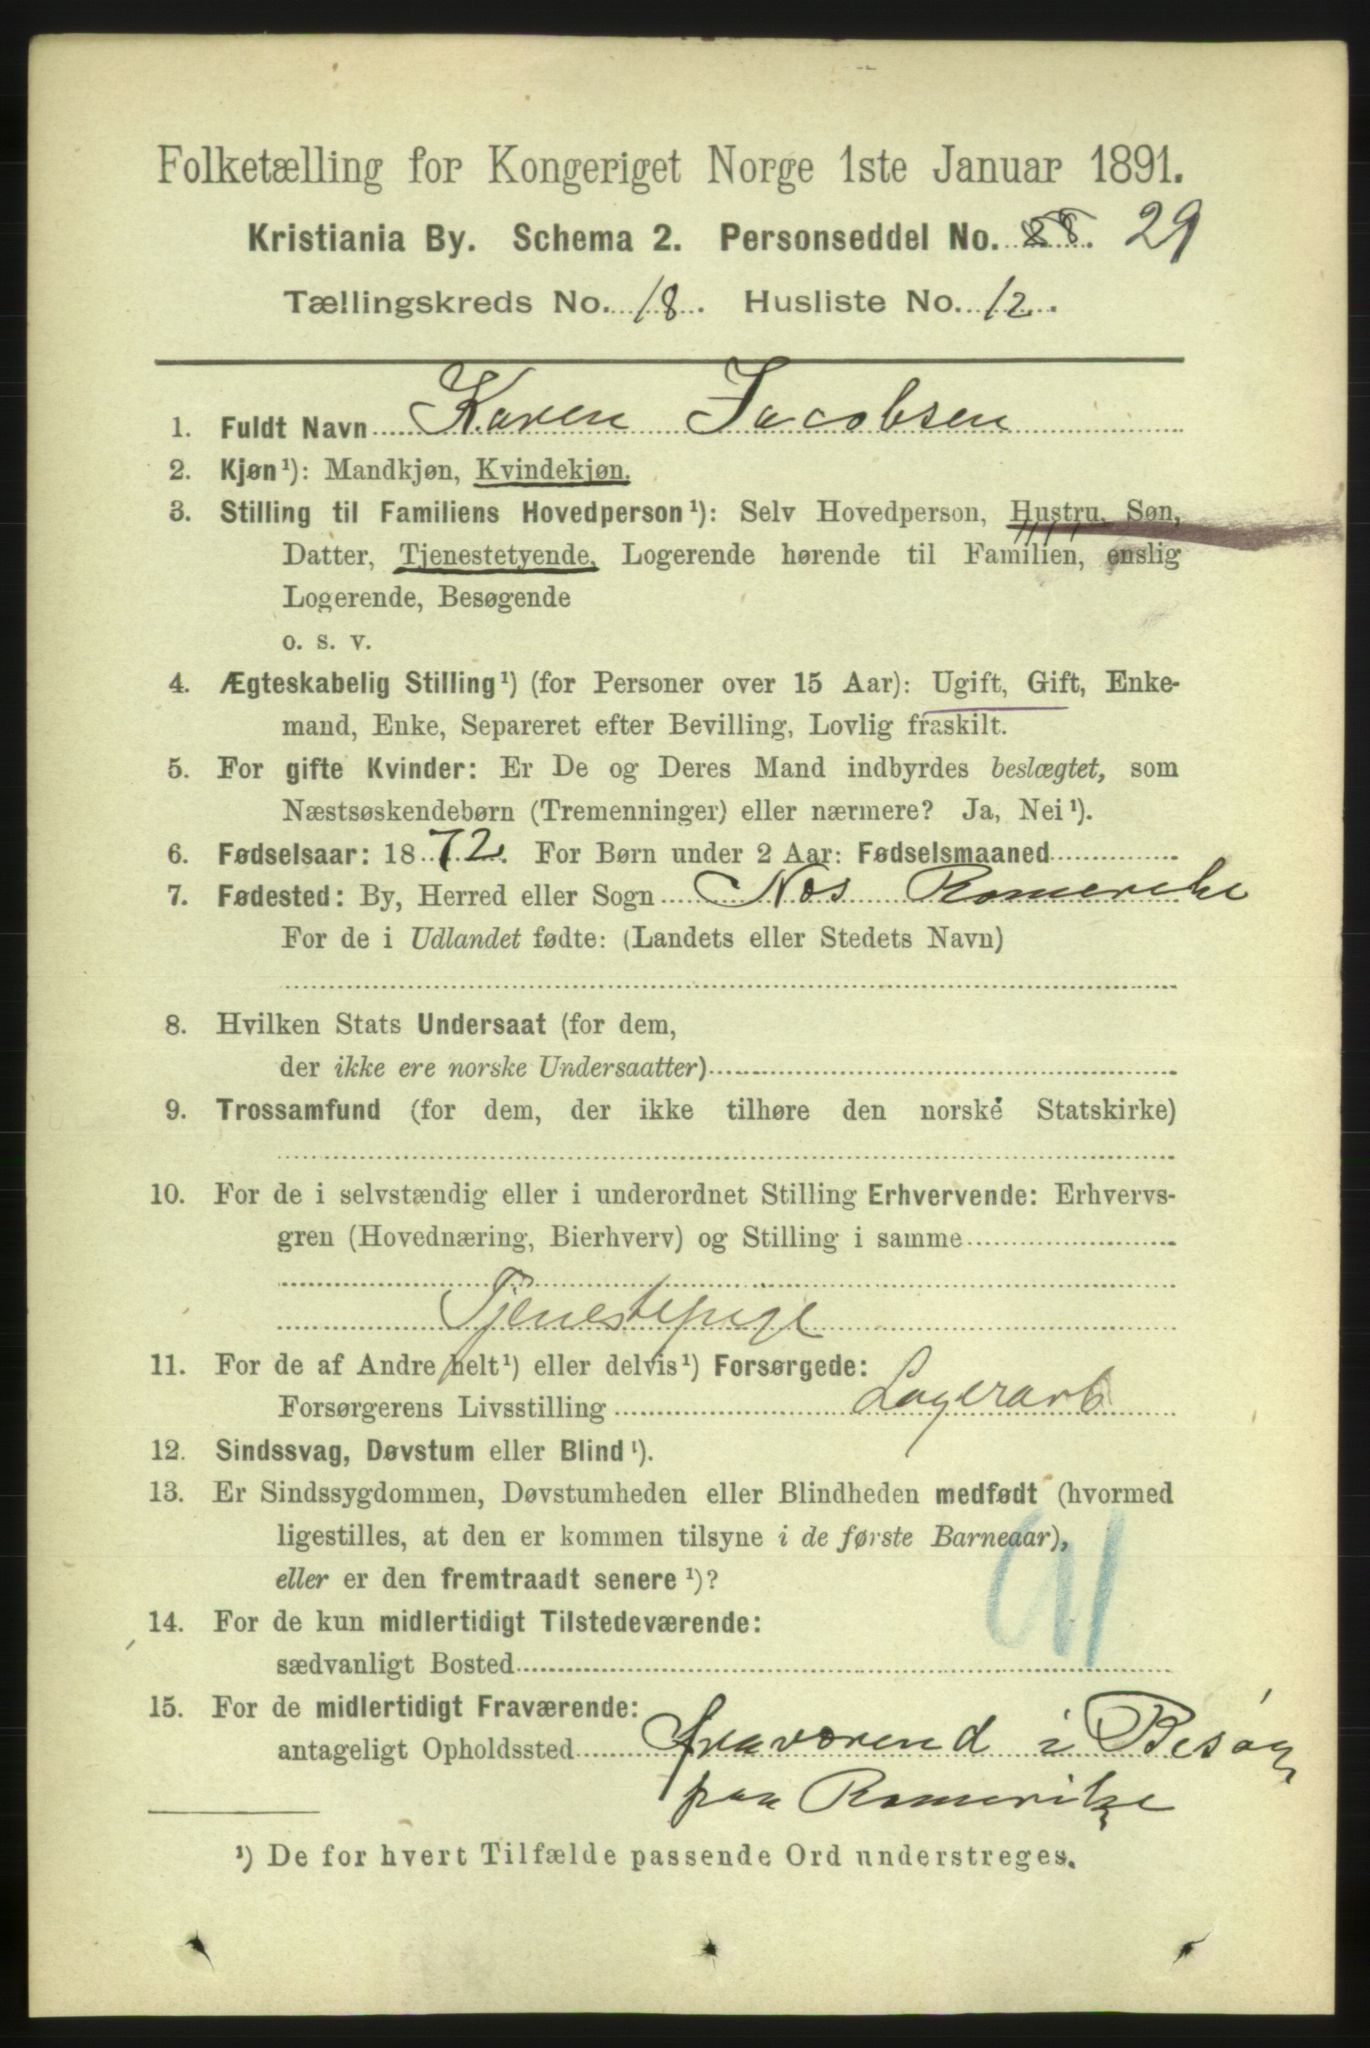 Folketælling for Kongeriget Norge 1ste Januar 1891.
Kristiania By. Schema 2. Personseddel No. 28. 29
Tællingskreds No. 18. Husliste No. 12.
1. Fuldt Navn Karen Jacobsen
2. Kjøn¹): Mandkjøn, Kvindekjøn.
3. Stilling til Familiens Hovedperson¹): Selv Hovedperson, Hustru, Søn,
Datter, Tjenestetyende, Logerende hørende til Familien, enslig
Logerende, Besøgende
o. s. v.
4. Ægteskabelig Stilling¹) (for Personer over 15 Aar): Ugift, Gift, Enke-
mand, Enke, Separeret efter Bevilling, Lovlig fraskilt.
5. For gifte Kvinder: Er De og Deres Mand indbyrdes beslægtet, som
Næstsøskendebørn (Tremenninger) eller nærmere? Ja, Nei¹).
6. Fødselsaar: 1872. For Børn under 2 Aar: Fødselsmaaned
7. Fødested: By, Herred eller Sogn Nes Romerike
For de i Udlandet fødte: (Landets eller Stedets Navn)
8. Hvilken Stats Undersaat (for dem,
der ikke ere norske Undersaatter)
9. Trossamfund (for dem, der ikke tilhøre den norske Statskirke)
10. For de i selvstændig eller i underordnet Stilling Erhvervende: Erhvervs-
gren (Hovednæring, Bierhverv) og Stilling i samme
Tjenestepige
11. For de af Andre helt¹) eller delvis¹) Forsørgede:
Forsørgerens Livsstilling Lagerarb
12. Sindssvag, Døvstum eller Blind¹).
13. Er Sindssygdommen, Døvstumheden eller Blindheden medfødt (hvormed
ligestilles, at den er kommen tilsyne i de første Barneaar),
eller er den fremtraadt senere¹)?
91
14. For de kun midlertidigt Tilstedeværende:
sædvanligt Bosted
15. For de midlertidigt Fraværende:
antageligt Opholdssted fraværend i Besøg
paa Romerike
¹) De for hvert Tilfælde passende Ord understreges.